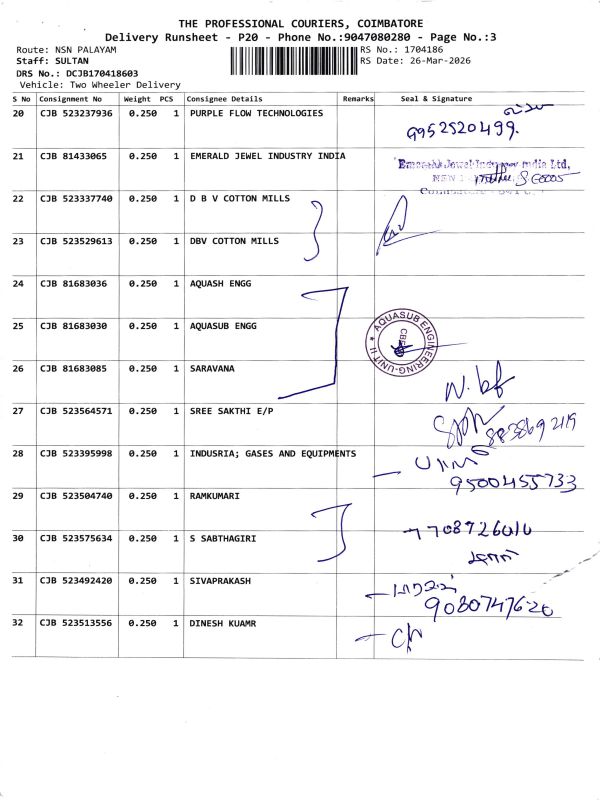 THE PROFESSIONAL COURIERS, COIMBATORE
Delivery Runsheet - P20 - Phone No.:9047080280 - Page No.:3
Route: NSN PALAYAM RS No.: 1704186
Staff: SULTAN RS Date: 26-Mar-2026
DRS No.: DCJB170418603
Vehicle: Two Wheeler Delivery
S No Consignment No Weight PCS Consignee Details Remarks Seal & Signature
20 CJB 523237936 0.250 1 PURPLE FLOW TECHNOLOGIES
9952520499.
21 CJB 81433065 0.250 1 EMERALD JEWEL INDUSTRY INDIA
Emerald Jewel Industry India Ltd,
22 CJB 523337740 0.250 1 D B V COTTON MILLS
23 CJB 523529613 0.250 1 DBV COTTON MILLS
24 CJB 81683036 0.250 1 AQUASH ENGG
25 CJB 81683030 0.250 1 AQUASUB ENGG
AQUASUB ENGINEERING-UNIT II
26 CJB 81683085 0.250 1 SARAVANA
27 CJB 523564571 0.250 1 SREE SAKTHI E/P
28 CJB 523395998 0.250 1 INDUSRIA; GASES AND EQUIPMENTS
9500455733
29 CJB 523504740 0.250 1 RAMKUMARI
30 CJB 523575634 0.250 1 S SABTHAGIRI
7708726010
31 CJB 523492420 0.250 1 SIVAPRAKASH
9080747620
32 CJB 523513556 0.250 1 DINESH KUAMR